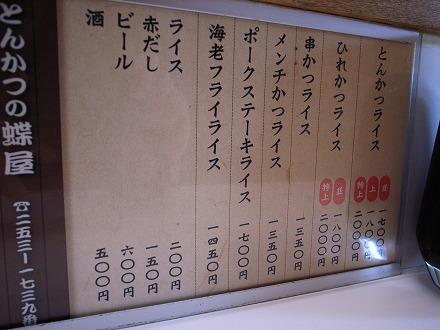 とんかつライス
並 一七〇〇円
上 一八〇〇円
特上 二〇〇〇円
ひれかつライス
並 一八〇〇円
特上 二〇〇〇円
串かつライス 一三五〇円
メンチかつライス 一三五〇円
ポークステーキライス 一七〇〇円
海老フライライス 一四五〇円
ライス 二〇〇円
赤だし 一五〇円
ビール 六〇〇円
酒 五〇〇円
とんかつの蝶屋 ☎二五三ー一七三九番